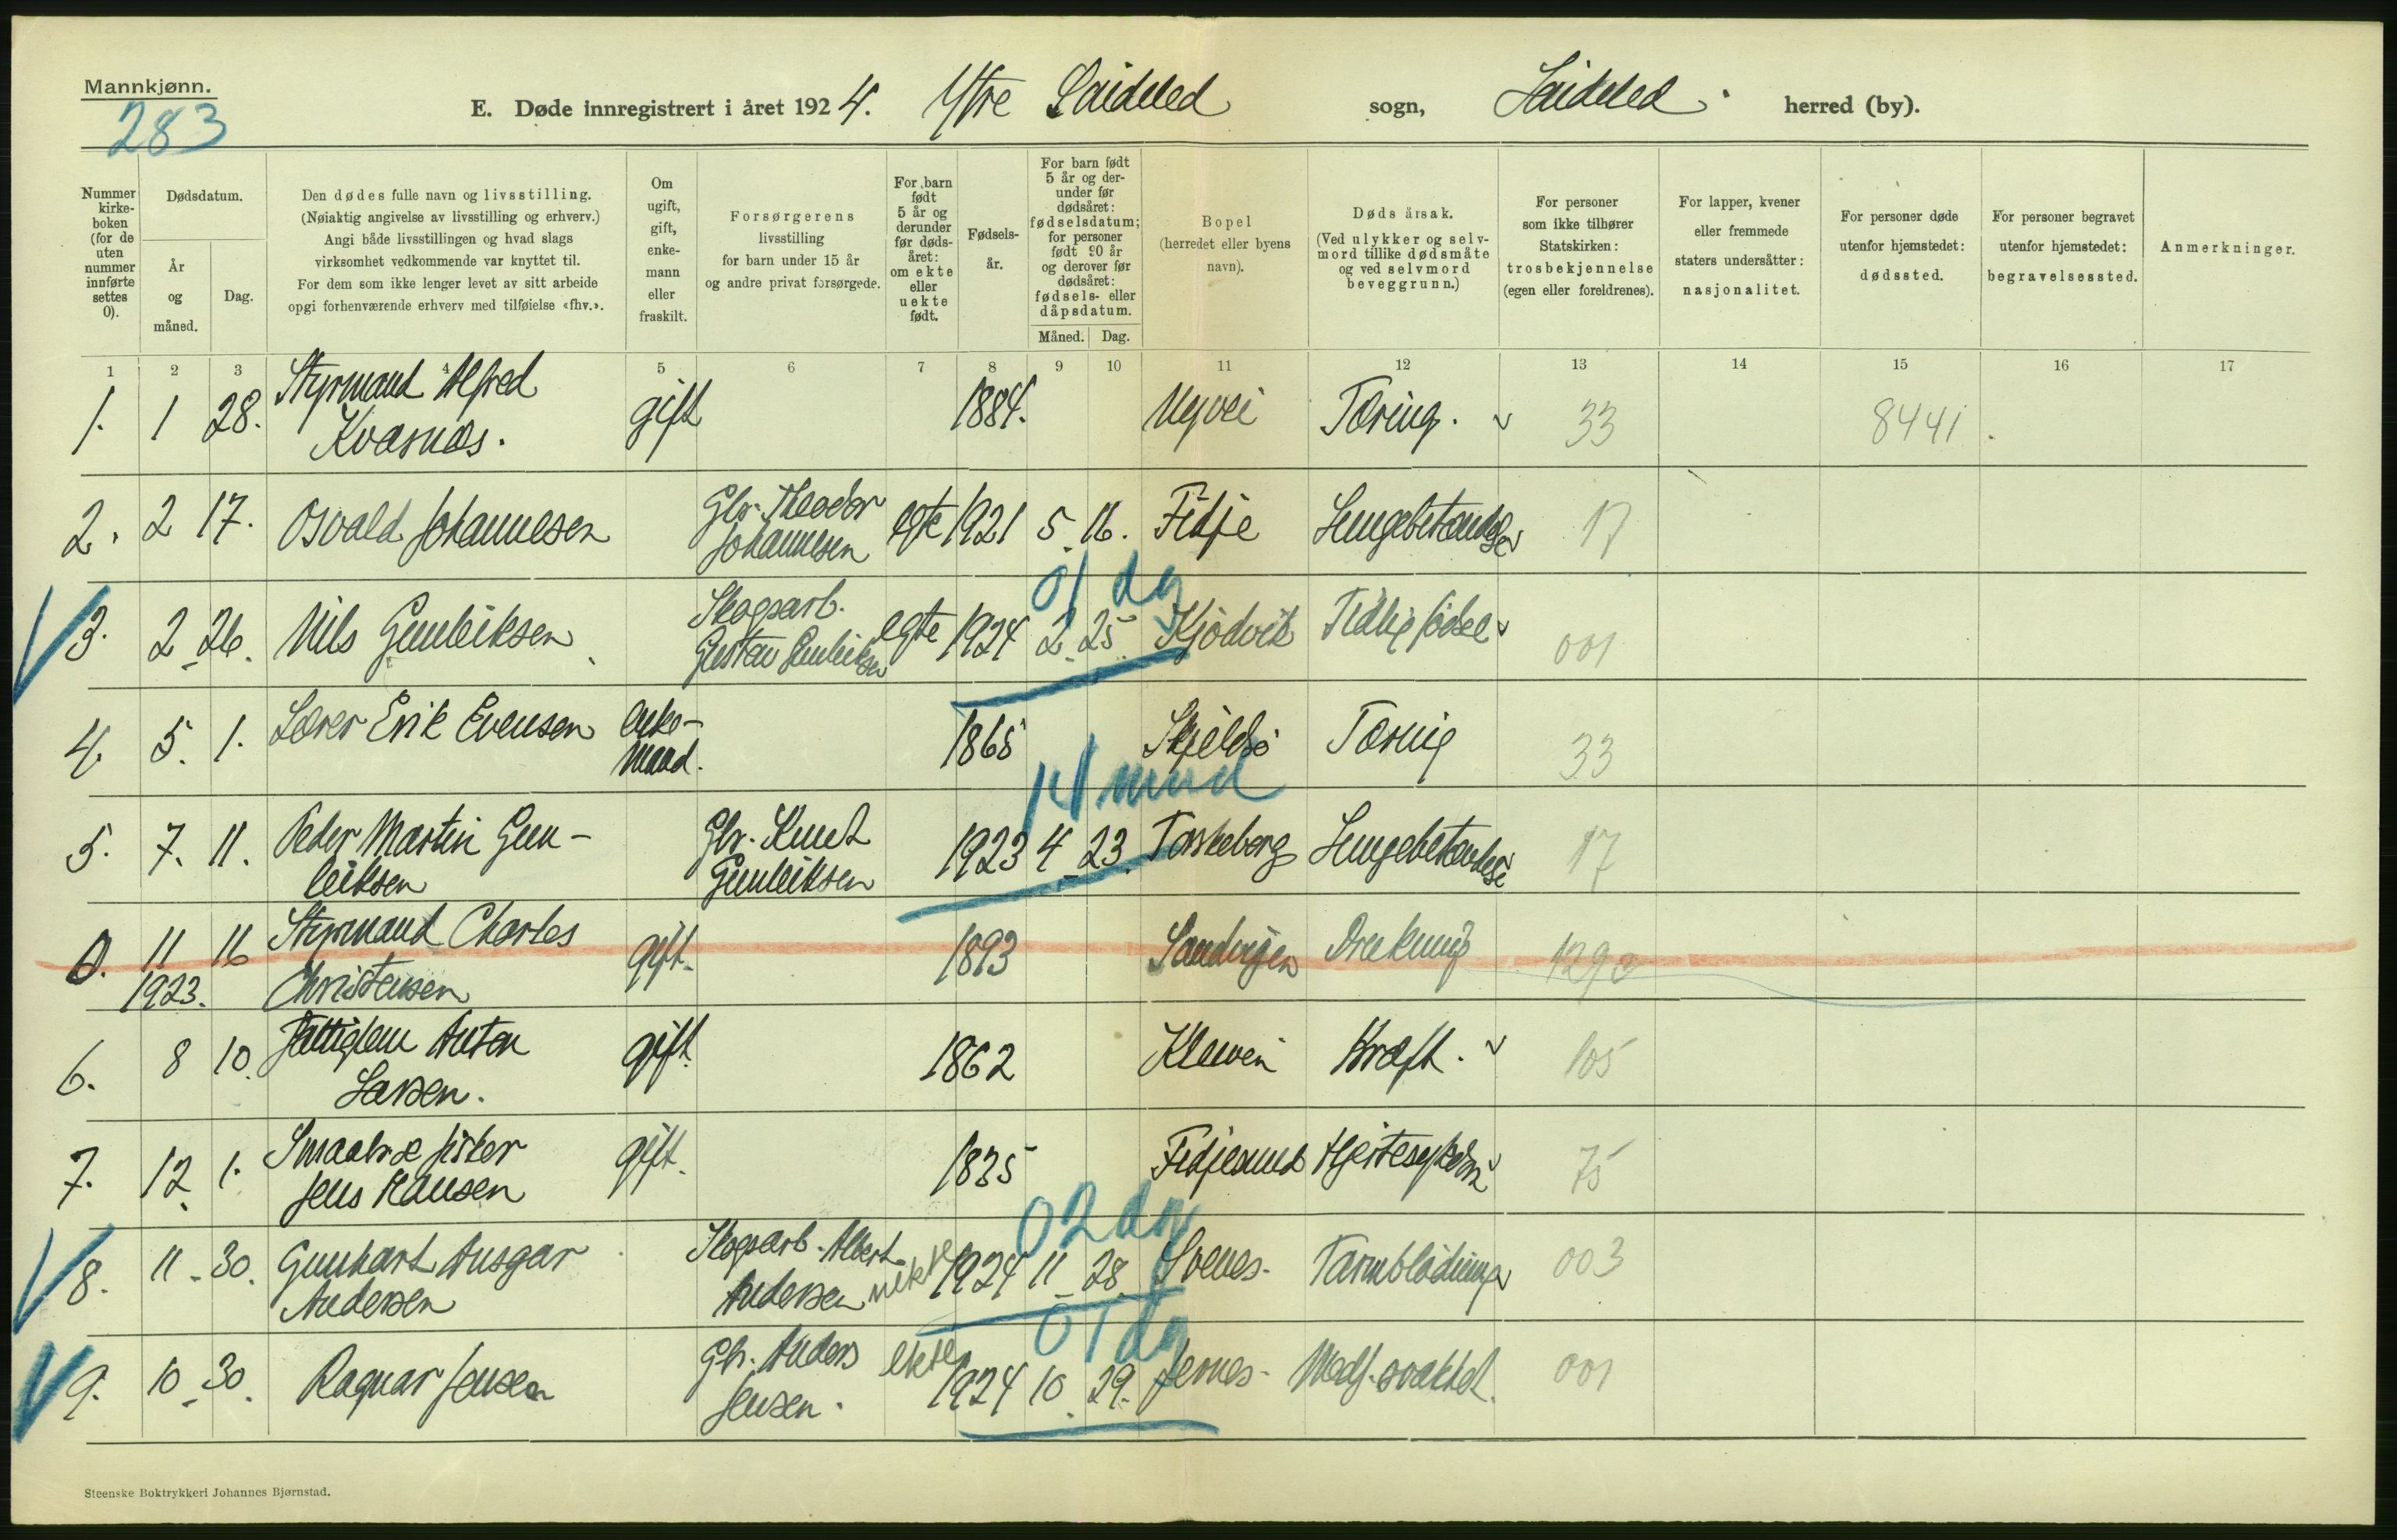 Mannkjønn.
283
E. Døde innregistrert i året 1924. Ytre Søideled sogn, Søideled. herred (by).
Nummer
kirke-
boken
(for de
uten
nummer
innførte
settes
0).
Dødsdatum.
År
og
måned.
Dag.
Den dødes fulle navn og livsstilling.
(Nøiaktig angivelse av livsstilling og erhverv.)
Angi både livsstillingen og hvad slags
virksomhet vedkommende var knyttet til.
For dem som ikke lenger levet av sitt arbeide
opgi forhenværende erhverv med tilføielse «fhv.».
Om
ugift,
gift,
enke-
mann
eller
fraskilt.
Forsørgerens
livsstilling
for barn under 15 år
og andre privat forsørgede.
For barn
født
5 år og
derunder
før døds-
året:
om ekte
eller
uekte
født.
Fødsels-
år.
For barn født
5 år og der-
under før
dødsåret:
fødselsdatum;
for personer
født 90 år
og derover før
dødsåret:
fødsels- eller
dåpsdatum.
Måned. Dag.
Bopel
(herredet eller byens
navn).
Dødsårsak.
(Ved ulykker og selv-
mord tillike dødsmåte
og ved selvmord
beveggrunn.)
For personer
som ikke tilhører
Statskirken:
trosbekjennelse
(egen eller foreldrenes).
For lapper, kvener
eller fremmede
staters undersåtter:
nasjonalitet.
For personer døde
utenfor hjemstedet:
dødssted.
For personer begravet
utenfor hjemstedet:
begravelsessted.
Anmerkninger.
1 2 3 4 5 6 7 8 9 10 11 12 13 14 15 16 17
1. 1 28. Styrmand Alfred
Kvasnæs. gift 1884. Nyvei Tæring. 33 8441
2. 2 17. Osvald Johannesen Gbr. Theodor
Johannesen egte 1921 5. 16. Fidje Lungebetændelse 17
01 dg
3. 2 26. Nils Gunleiksen Skogsarb.
Gustav Gunleiksen egte 1924 2. 25. Kjødvik Tidlig fødsel 001
4. 5. 1. Lærer Erik Evensen enke-
mand. 1865 Skjeldsø Tæring 33
14 mnd
5. 7. 11. Peder Martin Gun-
leiksen Gbr. Knut
Gunleiksen 1923 4. 23. Torskeberg Lungebetændelse 17
0. 11 16
1923. Styrmand Charles
Christensen gift. 1893 Sandvigen Drukning 129
6. 8 10. Fattiglem Anton
Larsen. gift. 1862 Kleven Kræft. 105
7. 12. 1. Smaabr & fisker
Jens Hansen gift. 1835 Fidjesund Hjertesykdom 75
02 dg
8. 11. 30. Gunhart Ansgar
Andersen Skogsarb. Albert
Andersen uekte 1924 11. 28. Svenes. Tarmblødning 003
01 dg
9. 10. 30. Ragnar Jensen Gbr. Anders
Jensen. ekte 1924 10. 29. Jernes. Medf. svakhet. 001
Steenske Boktrykkeri Johannes Bjørnstad.